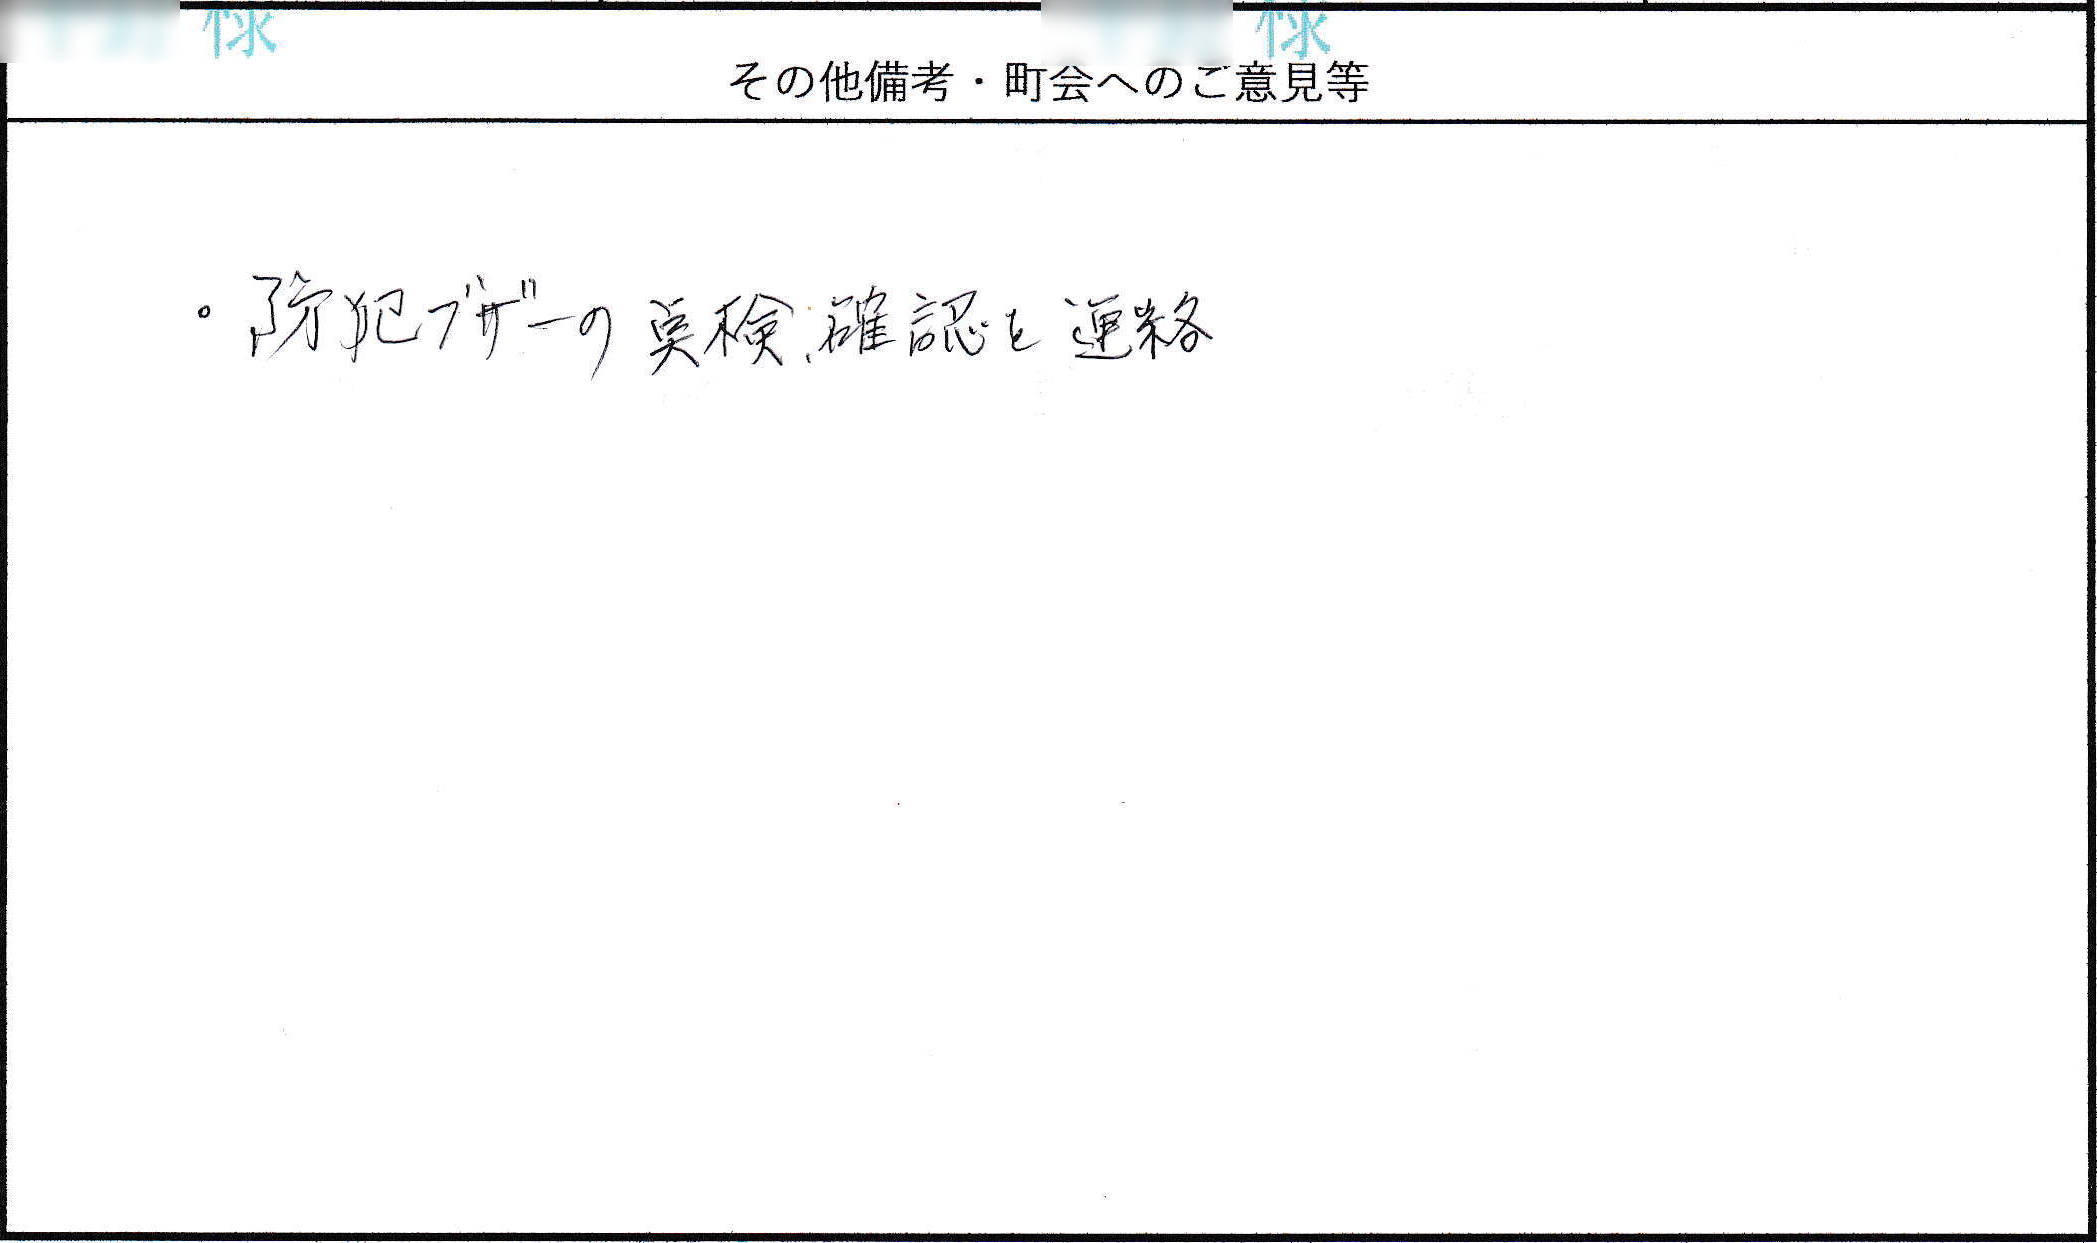 様 様
その他備考・町会へのご意見等
。防犯ブザーの点検、確認を連絡